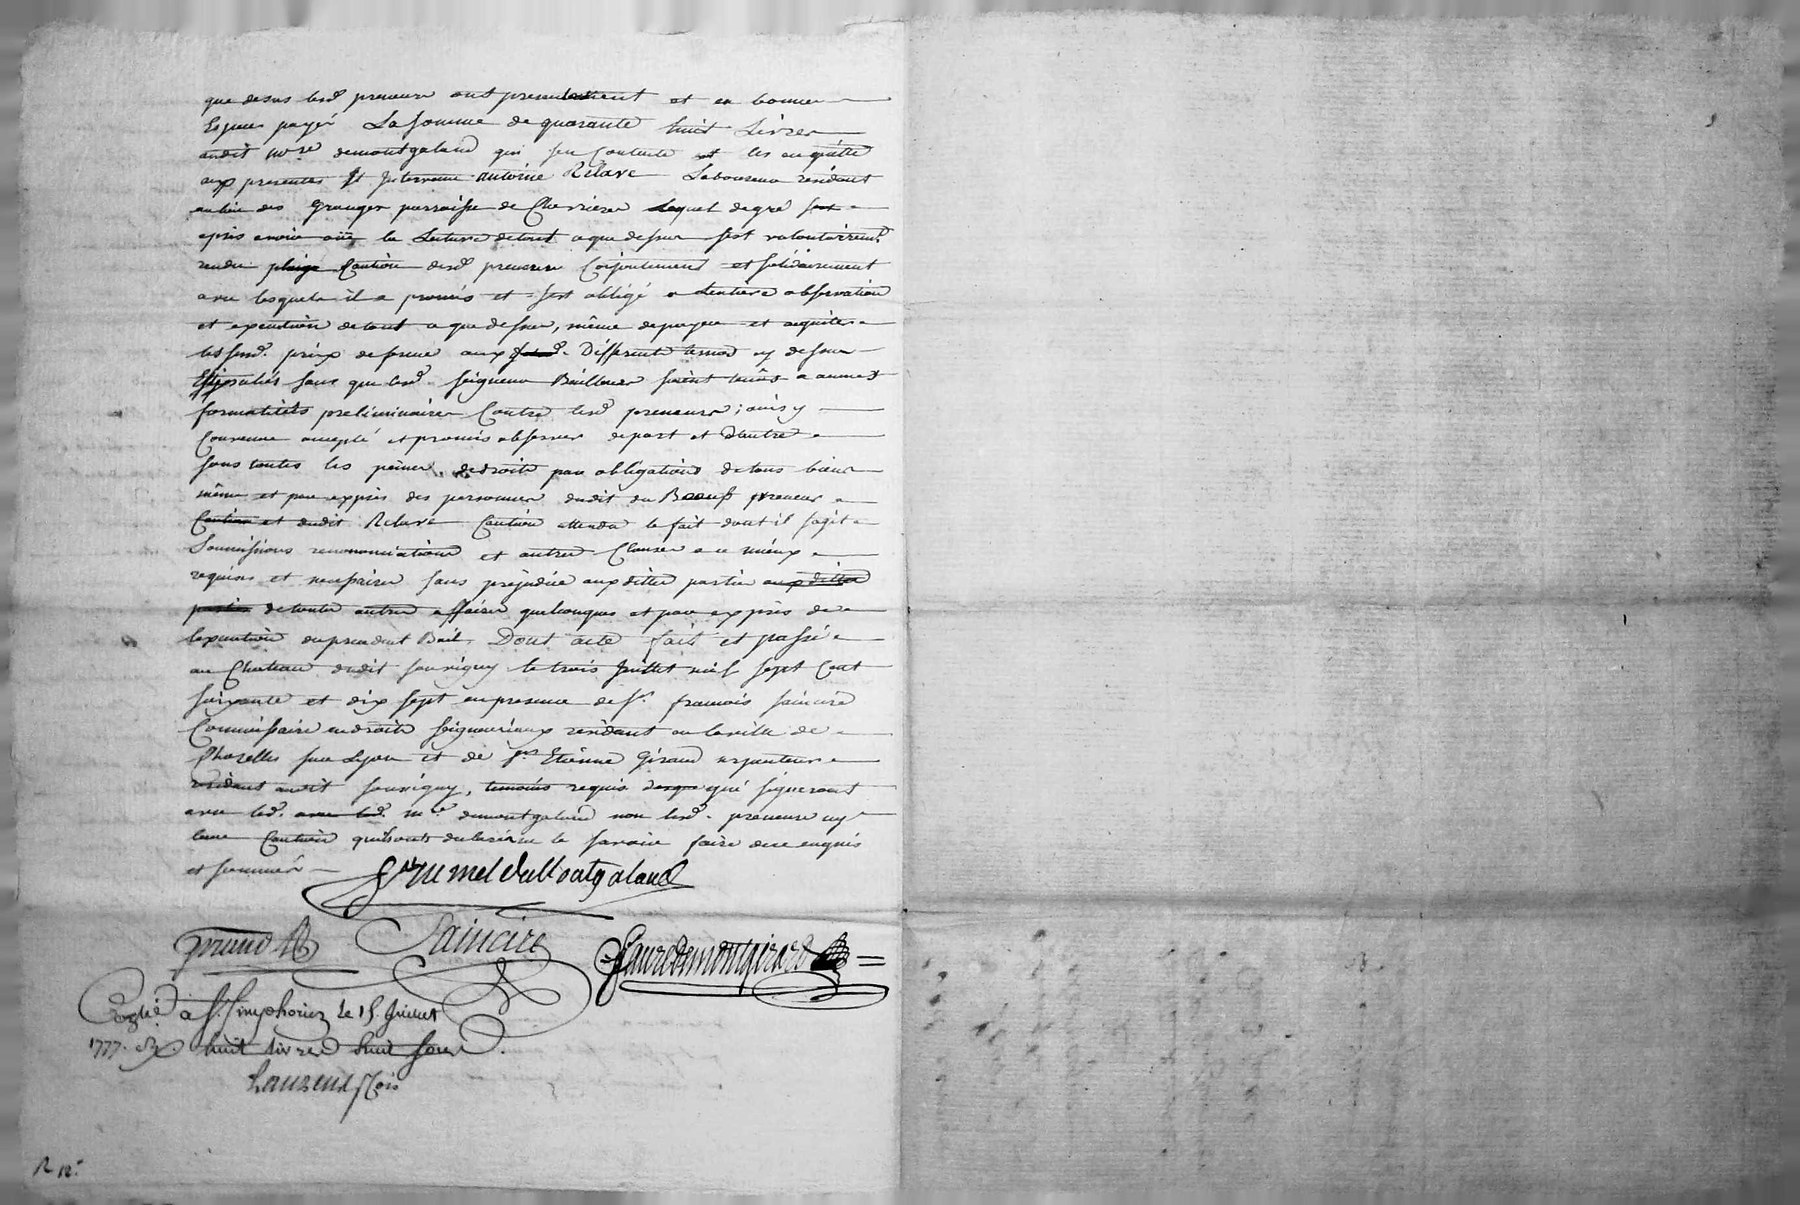 que desus lesd. preneurs ont presentement et en bonnes
Especes payés La somme de quarante huit Livres
audit mre. demontgaland qui sen Contente et les en quitte
aux presentes Et Intervenu antoine Relave Laboureur residant
au lieu des Granges parroisse de Chevrieres Lequel de gré
apres avoir oüy la Lecture de tout ce que dessus sest volontairemt.
rendu plaige Caution desd. preneurs Conjointement et solidairement
avec lesquels il a promis et sest obligé a Lentiere observation
et execution de tout ce que dessus, même de payer et acquitter
lesusd. prix de ferme aux Different termes cy dessus
stipulés sans que lesd. seigneur Bailleur soient tenus a aucunes
formalités preliminaires Contre lesd. preneurs; ainsy
Convenu accepté et promis observer de part et d'autre
sous toutes les peines de droits par obligations de tous biens
même et par exprès des personnes dudit du Boeuf preneur
Caution et dudit Relave Caution attendu le fait dont il sagit
Soumissions renonciations et autres Clauses a ce mieux
requises et necessaires sans prejudice aux dittes parties aux dittes
parties de toutes autres affaires quelconques et par exprès de
lexecution du present Bail. Dont acte fait et passé
au Chateau dudit souvigny le trois Juillet mil sept Cent
soixante et dix sept en presence de sr. francois saincire
Commissaire en droits seigneuriaux residant en la ville de
Chazelles sur Lyon et de sr. Etienne Giraud arpenteur
residant audit souvigny, temoins requis qui signeront
avec led. avec led. mre. demontgaland non lesd. preneurs ny
leur Caution qui ont declaré ne le savoir faire de ce enquis
et sommés
Grumel deMontgaland
Giraud Saincire fauredemontgirard
Contlé à St. Simphorien Le 15 Juillet
1777. huit livres huit sous
Laurenscon
R 12.